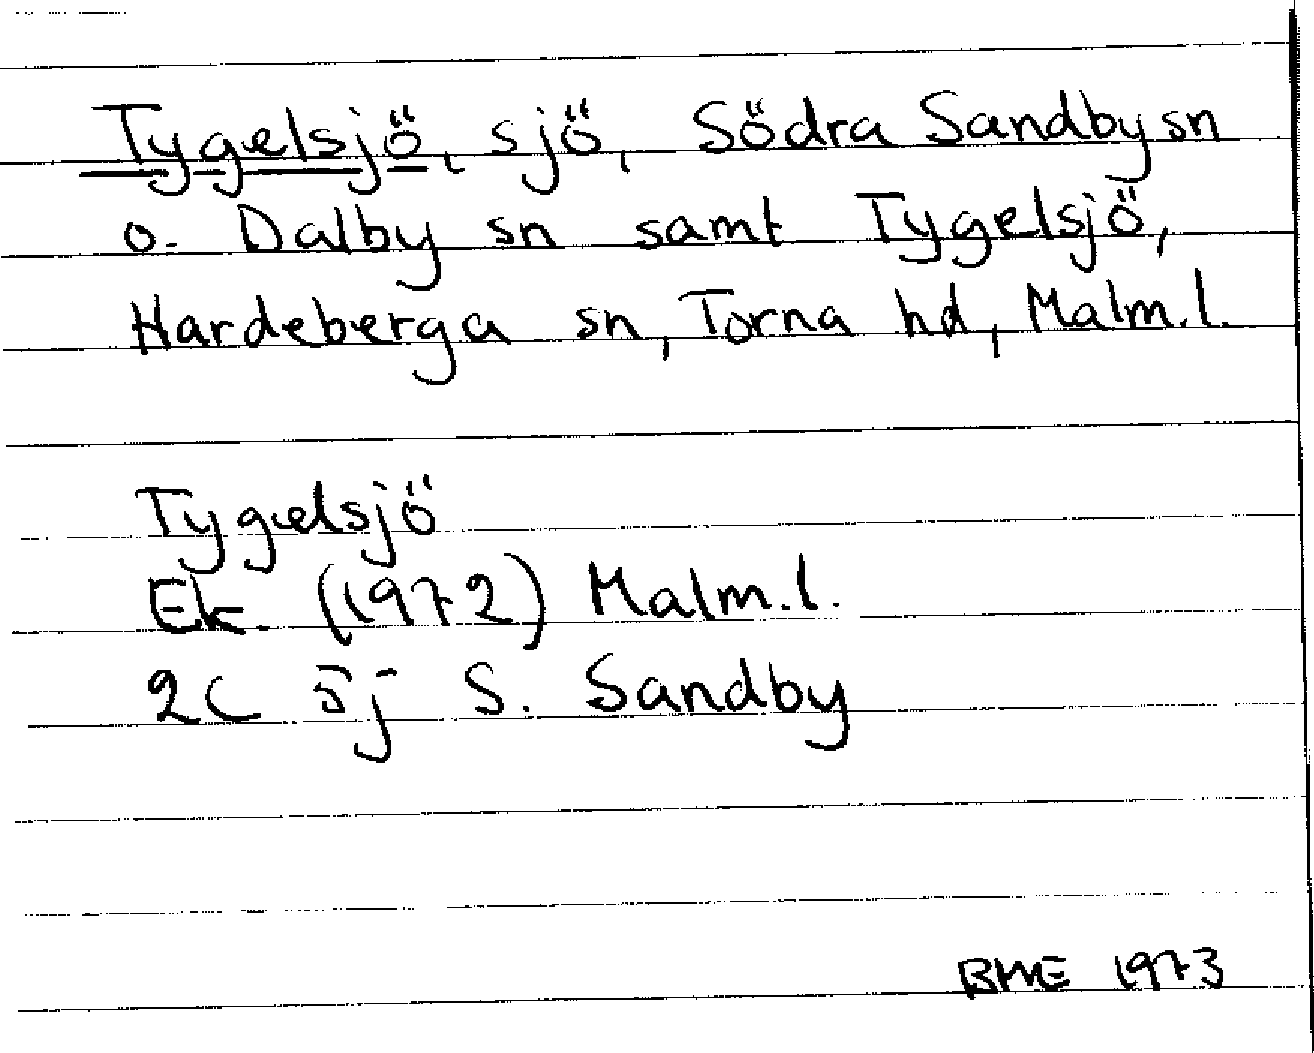 Tygelsjö, sjö, Södra Sandby sn
o. Dalby sn samt Tygelsjö,
Hardeberga sn, Torna hd, Malm.l.
Tygelsjö
Ek. (1972) Malm.l.
2C 5j S. Sandby
BME 1973